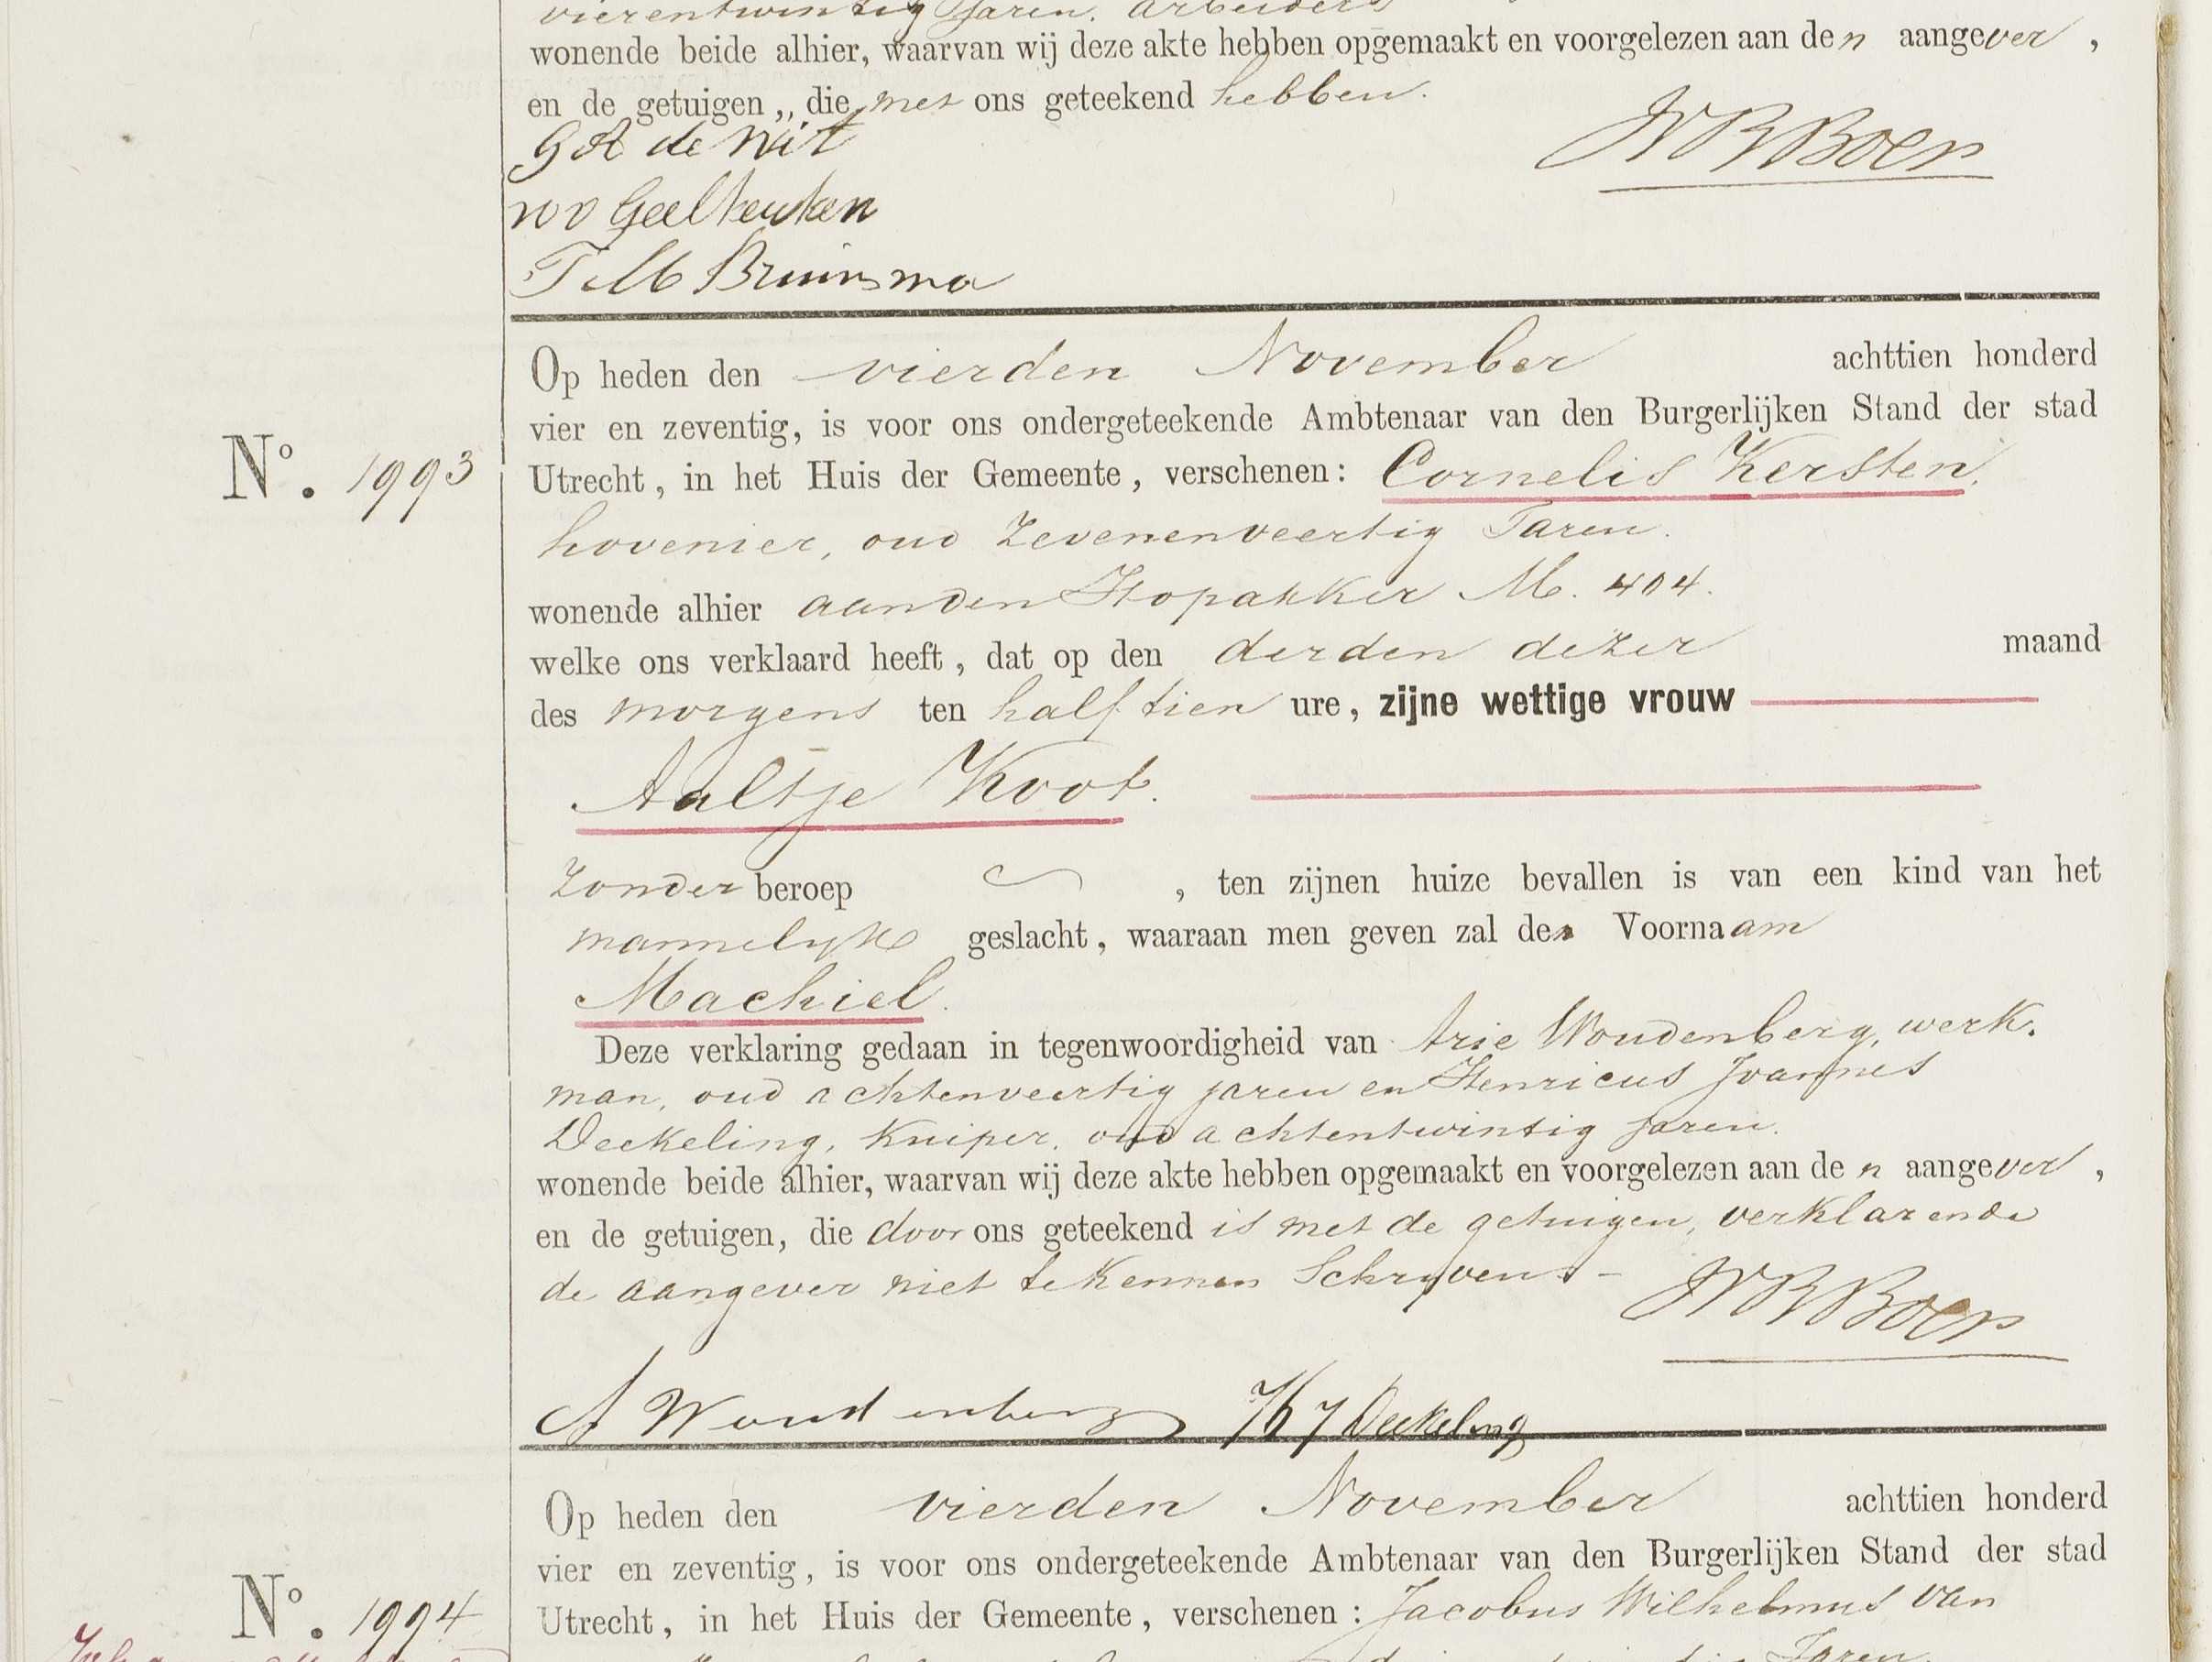 vierentwintig Jaren, arbeiders
wonende beide alhier, waarvan wij deze akte hebben opgemaakt en voorgelezen aan den aangever,
en de getuigen, die met ons geteekend hebben.
G A de Wit
W v Geelkerken
WBBoer
Bruinsma
Op heden den vierden November achttien honderd
vier en zeventig, is voor ons ondergeteekende Ambtenaar van den Burgerlijken Stand der stad
No. 1993
Utrecht, in het Huis der Gemeente, verschenen: Cornelis Kersten,
hovenier, oud Zevenenveertig Jaren.
wonende alhier aan den Hopakker M. 404.
welke ons verklaard heeft, dat op den derden dezer maand
des morgens ten half tien ure, zijne wettige vrouw
Aaltje Koot.
Zonder beroep, ten zijnen huize bevallen is van een kind van het
mannelijke geslacht, waaraan men geven zal den Voornaam
Machiel.
Deze verklaring gedaan in tegenwoordigheid van Arie Woudenberg, werk.
man, oud achtenveertig jaren en Henricus Joannes
Deckeling, Kuiper, oud achtentwintig jaren.
wonende beide alhier, waarvan wij deze akte hebben opgemaakt en voorgelezen aan den aangever,
en de getuigen, die door ons geteekend is met de getuigen, verklarende
de aangever niet te Kennen Schrijven. -
WBBoer
A Woudenberg HJ Deckeling
Op heden den vierden November achttien honderd
vier en zeventig, is voor ons ondergeteekende Ambtenaar van den Burgerlijken Stand der stad
No. 1994
Utrecht, in het Huis der Gemeente, verschenen: Jacobus Wilhelmus van
Jaren.